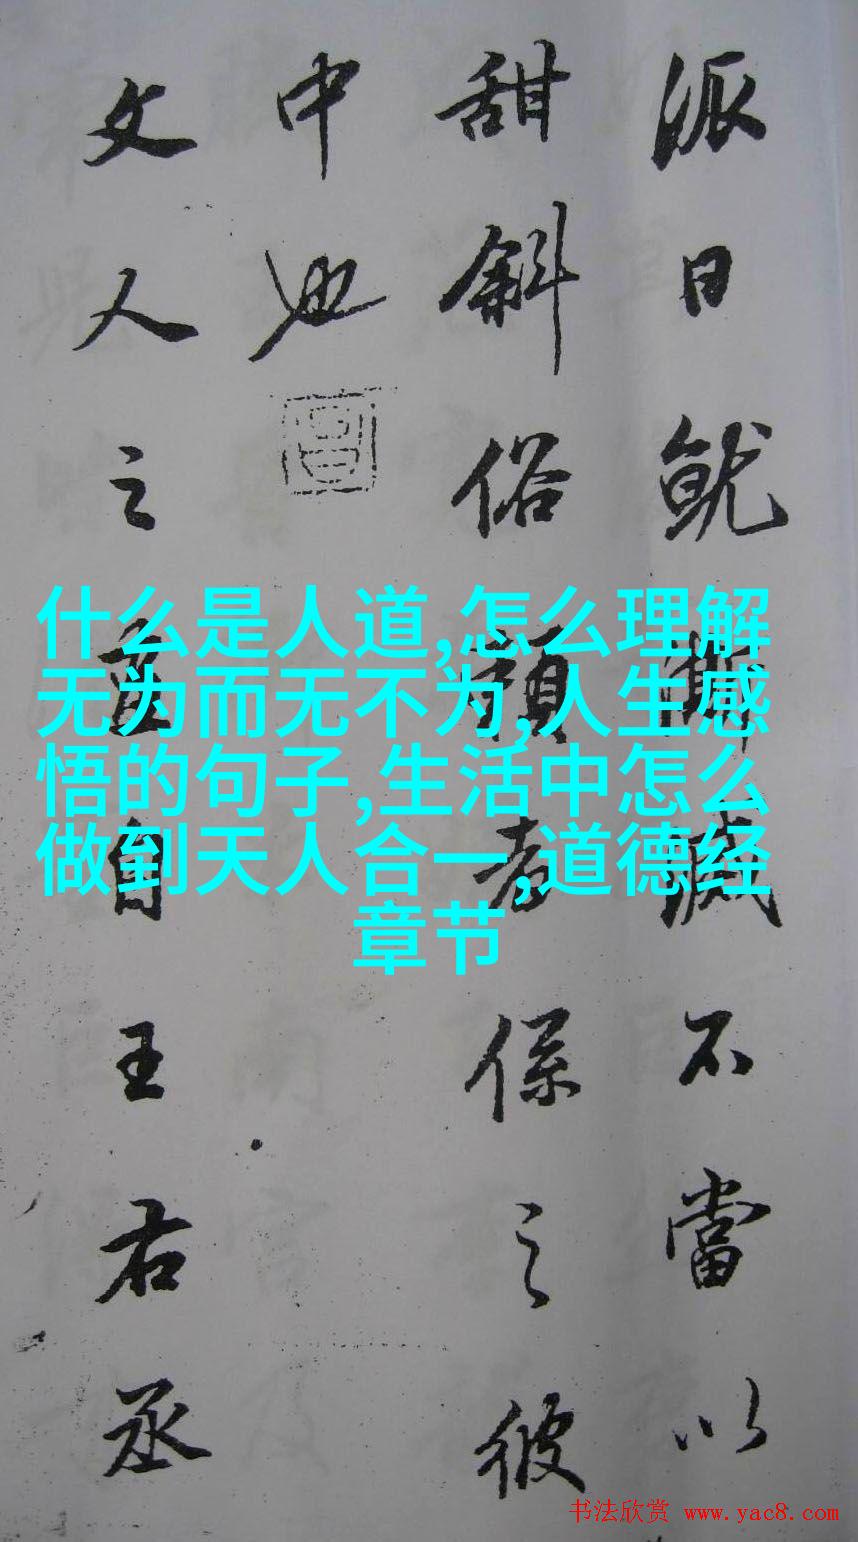 派日就澌滅不當以
甜斜俗賴者係之彼
中也
文人之畫自王右丞
什么是人道,怎么理解
无为而无不为,人生感
悟的句子,生活中怎么
做到天人合一,道德经
章节
书法欣赏 www.yac8.com